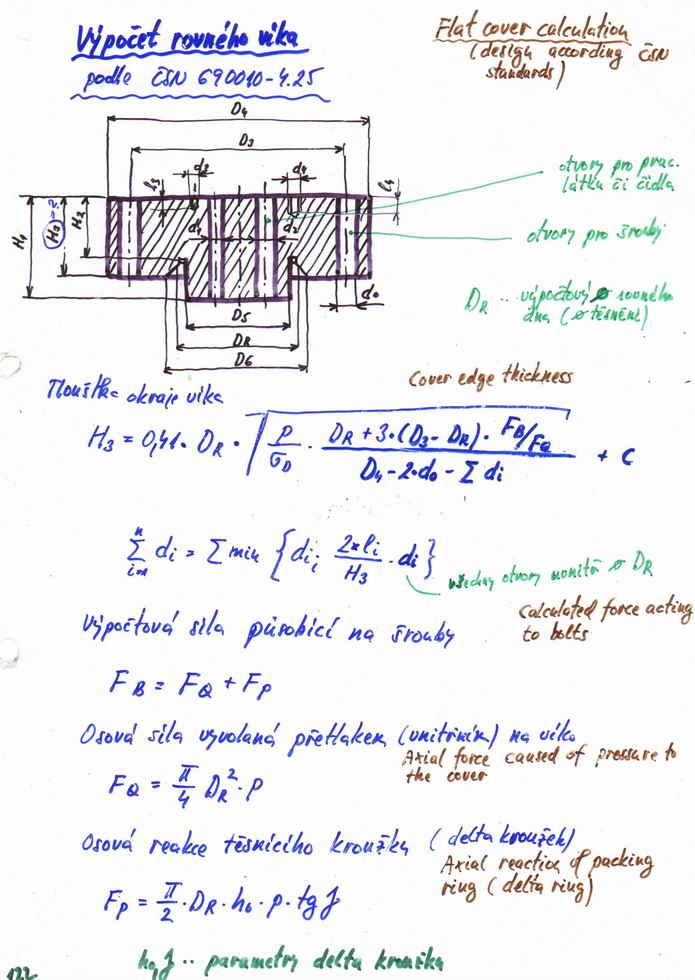 Výpočet rovného víka
podle ČSN 690010-4.25
Flat cover calculation
(design according ČSN
standards)
D4
D3
d3
d4
l3
l4
H1
H3=?
H2
d1
d2
do
D5
DR
D6
otvory pro prac.
látku či čidla
otvory pro šrouby
DR .. výpočtový ⌀ rovného
dna (⌀ těsnění)
Tloušťka okraje víka
Cover edge thickness
H3 = 0,41 · DR · √(p/σD · (DR + 3·(D3 - DR) · FB/FQ)/(D4 - 2·do - Σ di)) + c
n Σ i=1 di = Σ min {di; 2×li/H3 · di}
všechny otvory uvnitř ⌀ DR
Výpočtová síla působící na šrouby
Calculated force acting
to bolts
FB = FQ + FP
Osová síla vyvolaná přetlakem (vnitřním) na víko
Axial force caused of pressure to
the cover
FQ = π/4 DR² · p
Osová reakce těsnicího kroužku (delta kroužek)
Axial reaction of packing
ring (delta ring)
FP = π/2 · DR · ho · p · tg
parametry delta kroužku
122